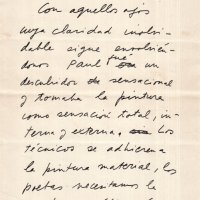 Con aquellos ojos
cuya claridad inolvi-
dable sigue envolvién-
donos Paul fué un
descubridor de sensacional
y tomaba la pintura
como sensación total, in-
terna y externa. Los
técnicos se adhieren a
la pintura material, los
poetas necesitamos la